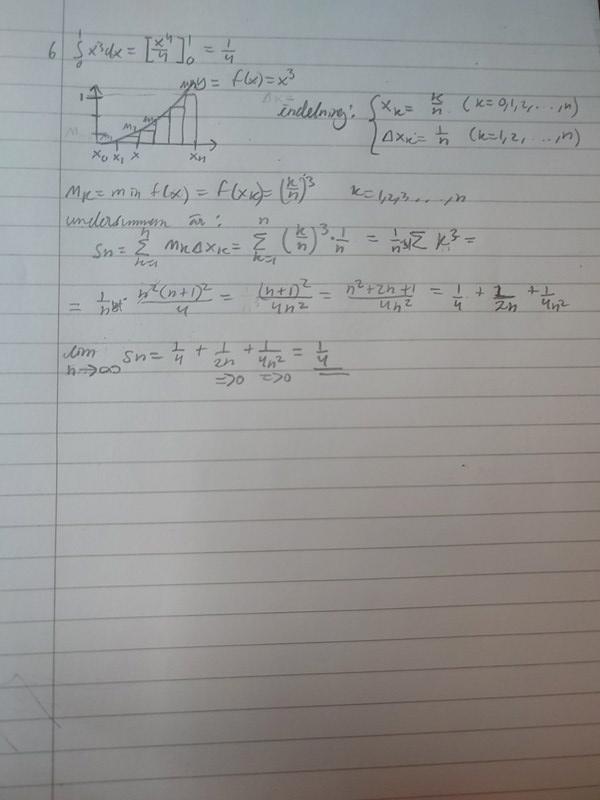 6 ∫₀¹ x³dx = [x⁴/4]₀¹ = 1/4
y = f(x) = x³
1
x₀ x₁ x xₙ
indelning: { xₖ = k/n (k=0,1,2,...,n)
Δxₖ = 1/n (k=1,2,...,n)
mₖ = min f(x) = f(xₖ) = (k/n)³ k=1,2,3...,n
undersumman är:
Sn = Σₖ₌₁ⁿ mₖΔxₖ = Σₖ₌₁ⁿ (k/n)³ · 1/n = 1/n⁴ Σ k³ =
= 1/n⁴ · n²(n+1)²/4 = (n+1)²/4n² = n²+2n+1/4n² = 1/4 + 1/2n + 1/4n²
lim n→∞ Sn = 1/4 + 1/2n + 1/4n² = 1/4
=>0 =>0